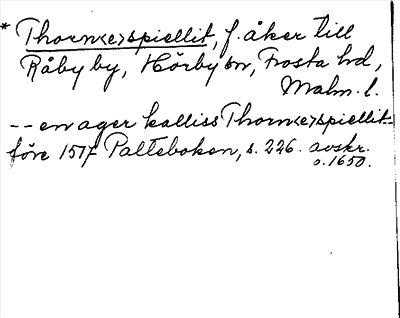 * Thorn<e>spiellit, f. åker till
Råby by, Hörby sn, Frosta hd,
Malm. l.
-- en ager kalliss Thorn<e>spiellit-
före 1517 Palteboken, s. 226. avskr.
o. 1650.